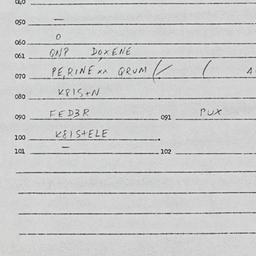 050 —
060 O
061 QNP DOXENE
070 PE,RINE xx QRUM // ( A
080 K8IS+N
090 FED3R 091 PUX
100 K8IS+ELE
101 — 102